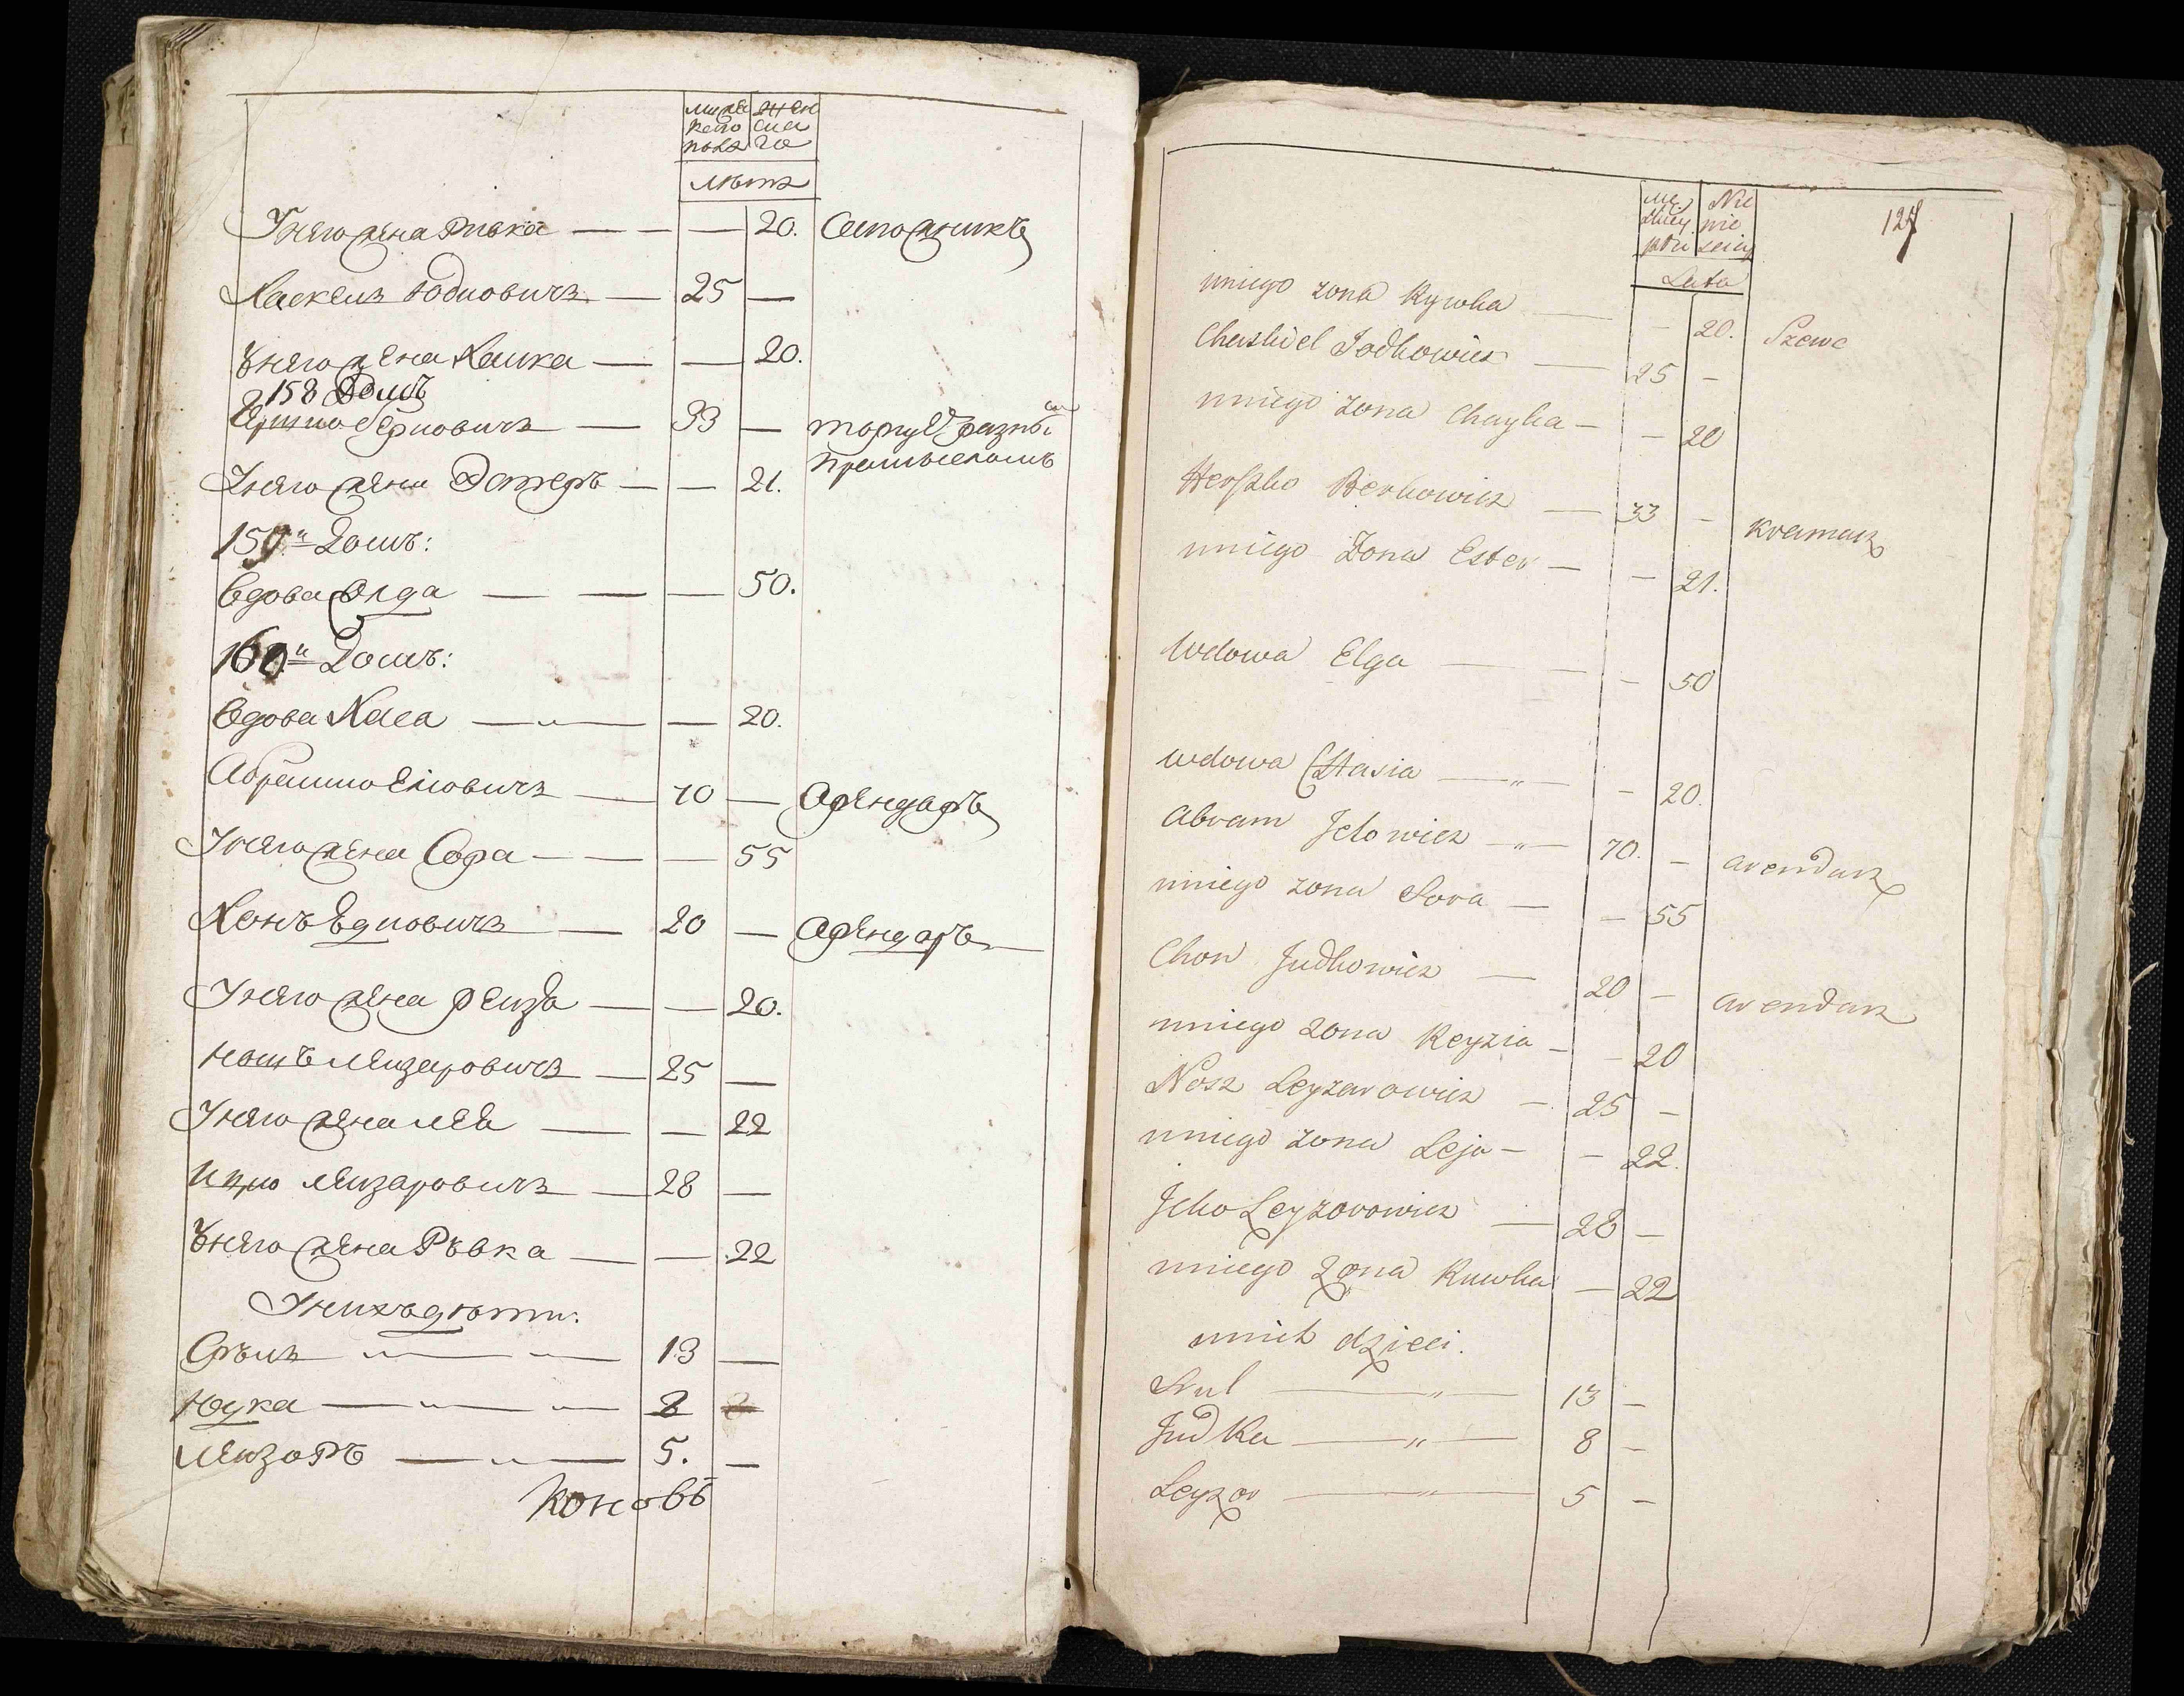 мужес женс
каго каго
пола
летъ
Унего жена Рывка — — — 20. Сапожникъ
Хаскель Юдковичъ — 25 —
Унего жена Хаика — — 20.
158 Домъ
Гершко Берковичъ — 33 — торгуе разны
Унего жена Эстеръ — — 21. промысломъ
159.й Домъ:
Вдова Элга — — — 50.
160.й Домъ:
Вдова Хася — „ — — 20.
Абрамко Ицковичъ — 70 — Арендаръ
Унего жена Сора — — — 55
Хонъ Юдковичъ — 20 — Арендаръ
Унего жена Реизя — — 20.
Ношъ Леизаровичъ — 25 —
Унего жена Лея — — 22
Ицко Леизаровичъ — 28 —
Унего жена Рывка — — 22
Унихъ дѣти:
Сруль — „ — „ — 13 —
Юдка — „ — „ — 8
Леизоръ — „ — 5. —
Коновъ
127
Lata
uniego zona Rywka — — 20. Szewc
Chaskiel Jodkowicz — 25 —
uniego zona Chayka — — 20
Herszko Berkowicz — 33 — kramarz
uniego Zona Ester — — 21.
Wdowa Elga — — — 50
wdowa Chasia — „ — — 20.
Abram Jckowicz — „ — 70. — arendarz
uniego zona Sora — — 55
Chon Judkowicz — 20 — arendarz
uniego zona Reyzia — — 20
Nosz Leyzarowicz — 25 —
uniego zona Leja — — 22.
Jcko Leyzorowicz — 28 —
uniego Zona Ruwka — 22
unich dzieci.
Srul — „ — 13 —
Judka — „ — 8 —
Leyzor — „ — 5 —